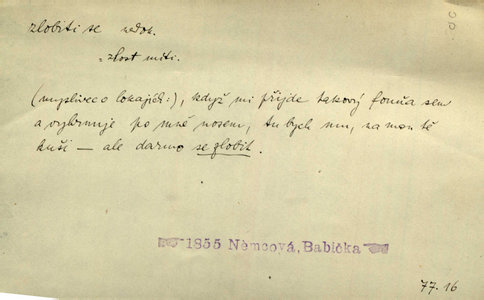 zlobiti se nedok.
= zlost míti.
(myslivec o lokajích:), když mi přijde takový fouňa sem
a po mně nosem, tu bych mu, na mou tě
kuši — ale darmo se zlobit.
1855 Němcová, Babička
77.16